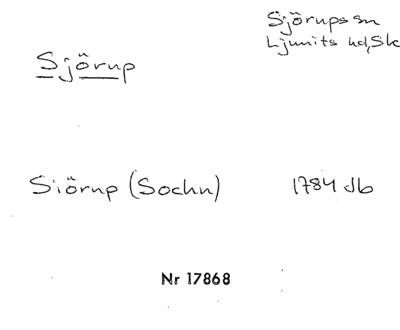 Sjörups sn
Ljunits hd, Sk
Sjörup
Siörup (Sochn) 1784 Jb
Nr 17868